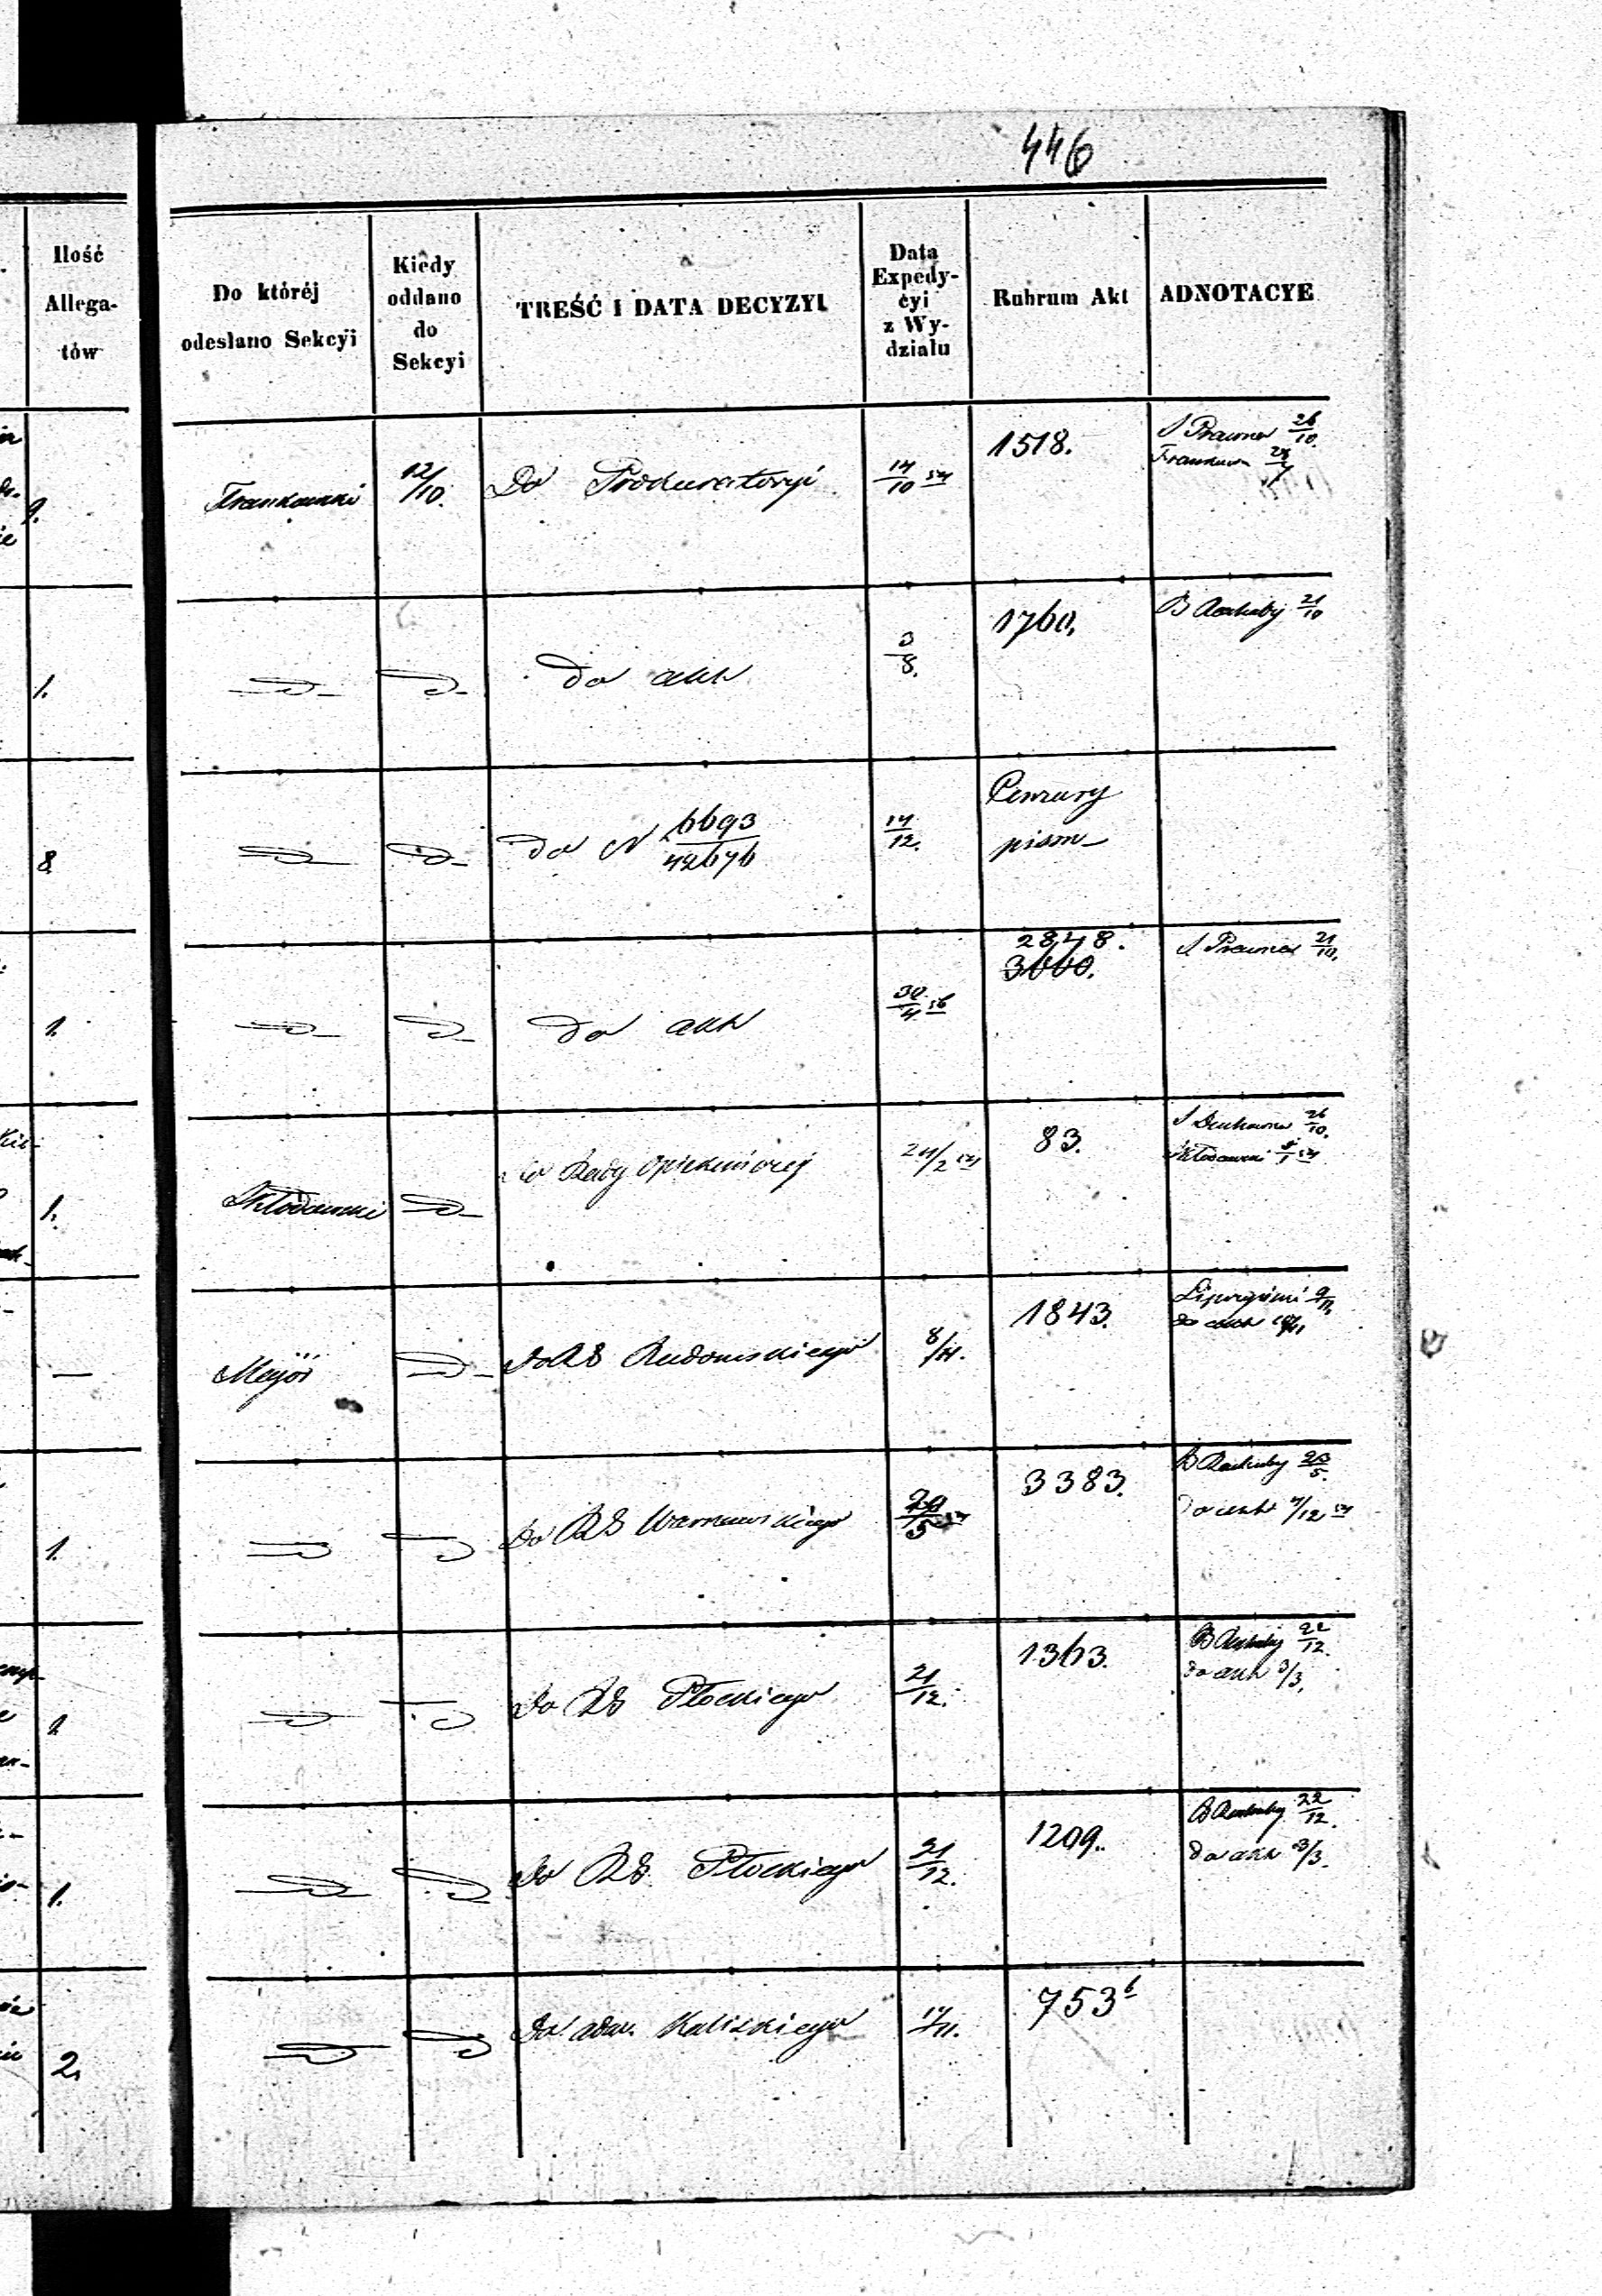 446
Ilość
Allega-
tów
Do któréj
odesłano Sekcyi
Kiedy
oddano
do
Sekcyi
TREŚĆ I DATA DECYZYI.
Data
Expedy-
cyi
z Wy-
działu
Rubrum Akt
ADNOTACYE
12/10. Do Prokuratoryi 14/10 54 1518. S Prawna 26/10.
1. do akt 3/8. 1760. B Rachuby 21/10
8 do N 6693/42676 14/12. Cenzury
pism
1. do akt 30/4 56 2848.
3000. S Prawna 21/10.
1. Skłodowski do Rady Opiekuńczej 24/2 54 83. S Duchowna 26/10.
Skłodowski
— Meyor Do RG Radomskiego 8/11. 1843. 9/11.
do akt
1. Do RG Warszawskiego 20/5 54 3383. B Rachuby 23/5.
do akt 4/12 54
Do RG Płockiego 21/12. 1363. B Rachuby 22/12.
do akt 3/3.
1. Do RG Płockiego 21/12. 1209. B Rachuby 22/12.
do akt 3/3.
2. Do adw. Kaliskiego 14/11. 753 b